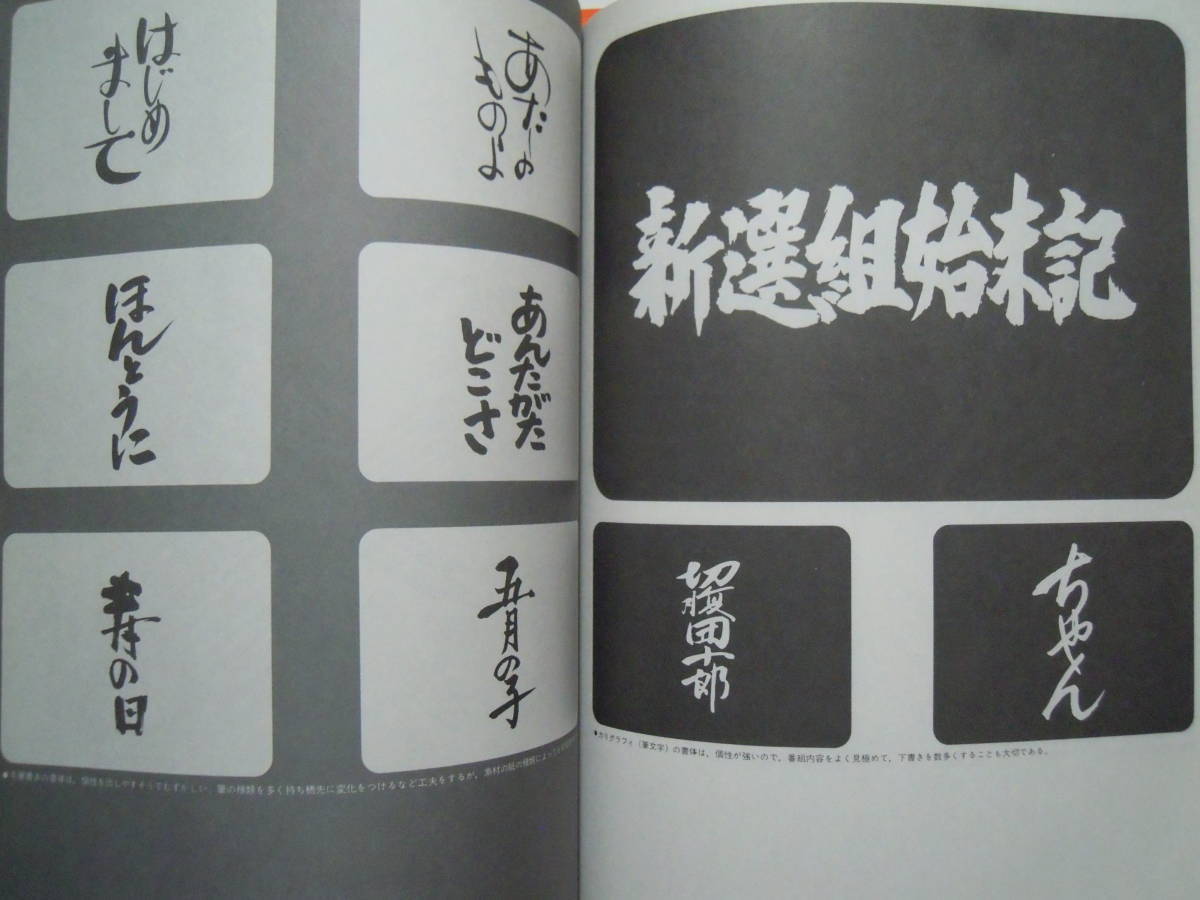 はじめ
まして
あたしの
ものよ
ほんとうに
あんたがた
どこさ
寿の日
五月の子
の書体は、個性を出しやすそうでむずかしい。筆の種類を多く持ち穂先に変化をつけるなど工夫をするが、素材の紙の種類によっても
新選組始末記
切腹団十郎
ちゃん
●カリグラフィ(筆文字)の書体は、個性が強いので、番組内容をよく見極めて、下書きを数多くすることも大切である。